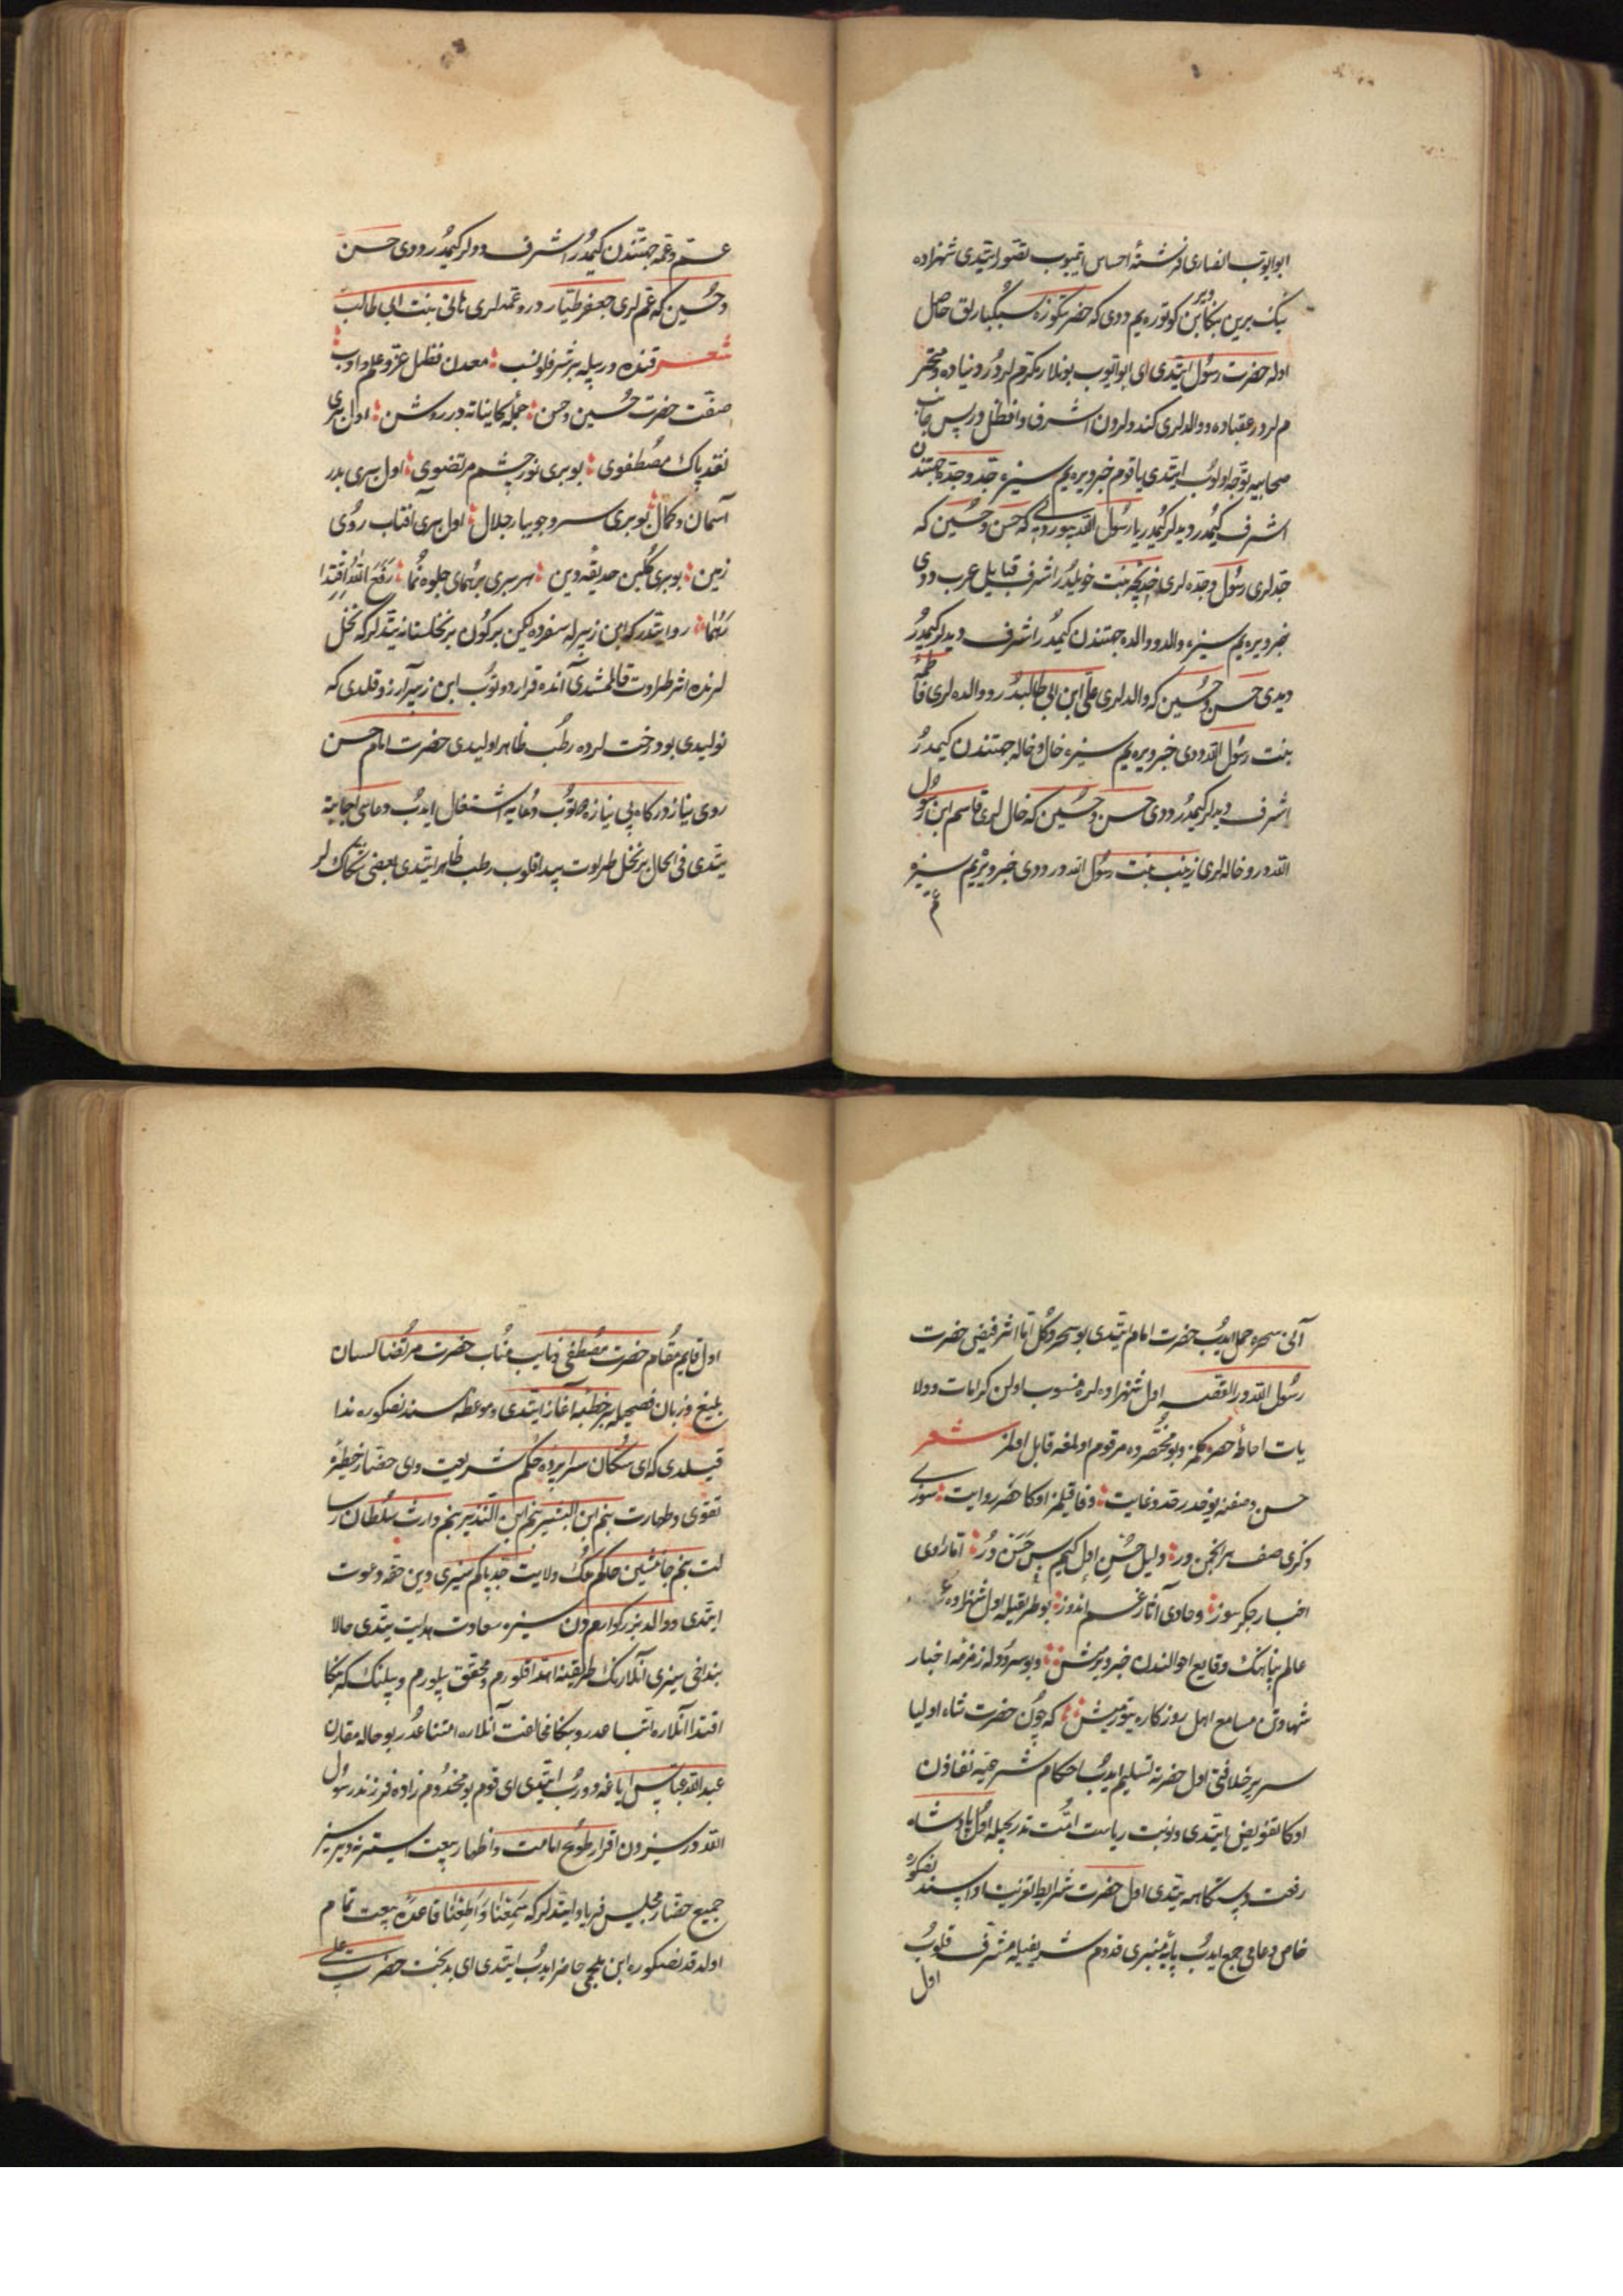 ابو ایوب انصاری فرشته احساس ایتمیوب تصور ایتدی شهزاده
بیک برین بکا ویر بن کوتوره یم ددی که حضرتکوزه سبکبارلق حاصل
اوله حضرت رسول ایتدی ای ابو ایوب بونلار مکرم لردر دنیاده و محتر
م لردر عقباده و والدلری کندولردن اشرف و افضل در پس جانب
صحابیه توجه اولوب ایتدی یا قوم خبر ویره یم سیزه جد و جده جهتندن
اشرف کیمدر دیدلر کیمدر یا رسول الله بیوردی که حسن و حسین که
جدلری رسول و جده لری خدیجه بنت خویلددر اشرف قبایل عرب ددی
خبر ویره یم سیزه والد و والده جهتندن کیمدر اشرف دیدلر کیمدر
دیدی حسن و حسین که والدلری علی ابن ابی طالبدر و والده لری فاطمه
بنت رسول الله ددی خبر ویره یم سیزه خال و خاله جهتندن کیمدر
اشرف دیدلر کیمدر ددی حسن و حسین که خال لری قاسم ابن رسول
الله در و خاله لری زینب بنت رسول الله در ددی خبر ویره یم سیزه
عم
عم و عمه جهتندن کیمدر اشرف ددلر کیمدر ددی حسن
و حسین که عم لری جعفر طیار در و عمه لری هانی بنت ابی طالب
شعر قنده در بیله بر شرفلو نسب معدن فضل عز و علم و ادب
صفت حضرت حسین و حسن جمله کایناته در روشن اول بری
نقد پاک مصطفوی بو بری نور چشم مرتضوی اول بری بدر
آسمان و کمال بو بری سرو جویبار جلال اول بری آفتاب روی
زمین بو بری کلبن حدیقه دین هر بری بر همای جلوه نما رفع الله اقتدا
رهما روایتدر که ابن زبیرله سفرده ایکن بر کون بر نخلستانه یتدلر که نخل
لرنده اثر طراوت قالممشدی آنده قرار دوتوب ابن زبیر آرزو قلدی که
نولیدی بو درخت لرده رطب ظاهر اولیدی حضرت امام حسن
روی نیاز درکاه بی نیازه دوتوب دعایه اشتغال ایدوب دعاسی اجابته
یتدی فی الحال بر نخل طراوت پیدا قلوب رطب ظاهر ایتدی بعضی شکاک لر
آنی سحره حمل ایدوب حضرت امام ایتدی بو سحر دکل اما اثر فیض حضرت
رسول الله در القصه اول شهزاده لره منسوب اولن کرامات و ولا
یات احاطه حصره کلمز و بو مختصرده مرقوم اولمغه قابل اولمز شعر
حسن وصفنه یوخدر قد و غایت وفا قیلمز اوکا هر روایت سوزی
ذکری صف هر انجمن در دلیل حسن اول کیم بس حسن در اما راوی
اخبار جکرسوز و حاوی آثار غم اندوز بو طریقیله اول شهزاده
عالم پناهنک وقایع احوالندن خبر ویرمش و بو سرودله زمزمه اخبار
شهادتن مسامع اهل روزکاره یتورمیش که چون حضرت شاه اولیا
سریر خلافتی اول حضرته تسلیم ایدوب احکام شرعیه نفاذن
اوکا تفویض ایتدی و نوبت ریاست امت تدریجیله اول پادشاه
رفعت دستکاهه یتدی اول حضرت شرایط تعزیت ادا ایتدندنصکره
خاص و عامی جمع ایدوب پایه منبری قدوم شریفیله مشرف قلوب
اول
اول قایم مقام حضرت مصطفی و نایب مناب حضرت مرتضا لسان
بلیغ و زبان فصیحیله بر خطبه آغاز ایتدی و موعظه سندنصکوره ندا
قیلدی که ای سکان سراپرده حکم شریعت وای حضار خطه
تقوی و طهارت بنم ابن البشیر بنم ابن النذیر بنم وارث سلطان رسا
لت بنم جانشین حاکم ملک ولایت جد پاکم سیزی دین حقه دعوت
ایتدی و والد بزرکوارمدن سیزه سعادت هدایت یتدی حالا
بنداخی سیزی آنلارنک طریقنه اهتدا قلورم و محقق بیلورم و بیلنک که بکا
اقتدا آنلاره اتباعدر و بکا مخالفت آنلاره امتناعدر بو حاله مقارن
عبدالله عباس ایاغه دوروب ایتدی ای قوم بو مخدوم زاده فرزند رسول
الله در سیزدن اقرار طوع امامت و اظهار بیعت ایستر نه دیرسیز
جمیع حضار مجلس فریاد ایتدلر که سمعنا و اطعنا قاعده بیعت تمام
اولدقدنصکوره ابن ملجمی حاضر ایدوب ایتدی ای بدبخت حضرت علی